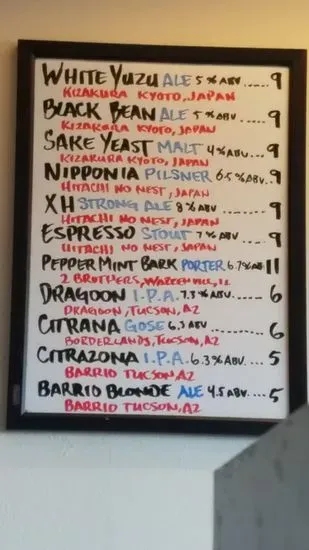 WHITE YUZU ALE 5% ABV....9
KIZAKURA KYOTO, JAPAN
BLACK BEAN ALE 5% ABV.....9
KIZAKURA KYOTO, JAPAN
SAKE YEAST MALT 4% ABV...9
KIZAKURA KYOTO, JAPAN
NIPPONIA PILSNER 6.5% ABV.9
HITACHI NO NEST, JAPAN
XH STRONG ALE 8% ABV.....9
HITACHI NO NEST, JAPAN
ESPRESSO STOUT 7% ABV....9
HITACHI NO NEST, JAPAN
PEPPERMINT BARK PORTER 6.7% AB 11
2 BROTHERS, WARRENVILL, IL
DRAGOON I.P.A. 7.3% ABV.....6
DRAGOON, TUCSON, AZ
CITRANA GOSE 6.3 ABV........6
BORDERLANDS, TUCSON, AZ
CITRAZONA I.P.A. 6.3% ABV....5
BARRIO TUCSON AZ
BARRIO BLONDE ALE 4.5 ABV....5
BARRIO TUCSON, AZ